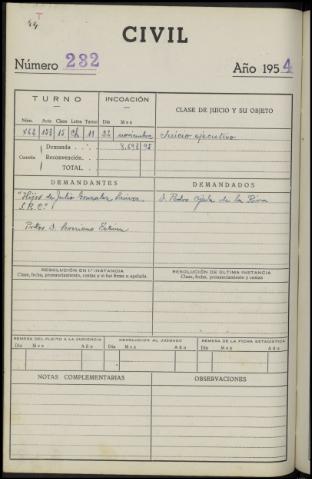 T
44
CIVIL
Número 232 Año 1954
TURNO INCOACIÓN CLASE DE JUICIO Y SU OBJETO
Núm. Acto Clase Letra Turno Día Mes
15 Ch 11 22 noviembre Juicio ejecutivo
Demanda 98
Cuantía Reconvención
TOTAL
DEMANDANTES DEMANDADOS
"Hijos de Julio Gonzalez D. Pedro de la
S.R.C."
Pretor D. Severiano
RESOLUCIÓN EN 1.ª INSTANCIA RESOLUCIÓN DE ULTIMA INSTANCIA
Clase, fecha, pronunciamiento, costas y si fue firme o apelada. Clase, fecha, pronunciamiento y costas
REMESA DEL PLEITO A LA AUDIENCIA DEVOLUCION AL JUZGADO REMESA DE LA FICHA ESTADISTICA
Día Mes Año Día Mes Año Día Mes Año
NOTAS COMPLEMENTARIAS OBSERVACIONES